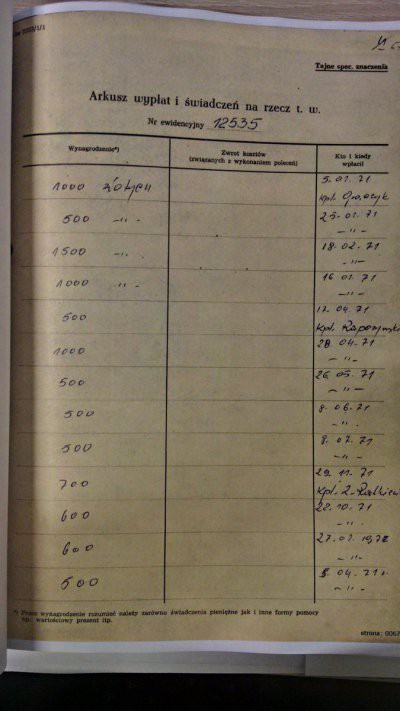 Tajne spec. znaczenia
Arkusz wypłat i świadczeń na rzecz t. w.
Nr ewidencyjny 12535
Wynagrodzenie*)
Zwrot kosztów
(związanych z wykonaniem poleceń)
Kto i kiedy
wpłacił
1000 złotych 5.01.71
kpt.
500 -"- 25-01-71
-"-
1500 -"- 18.02.71
-"-
1000 -"- 16.01.71
-"-
500 17.04.71
kpt.
1000 28.04.71
-"-
500 26.05.71
-"-
500 8.06.71
-"-
500 8.07.71
-"-
700 29.11.71
kpt.
600 22.10.71
-"-
600 27.01.1972
-"-
500 5.04.71r
-"-
*) Przez wynagrodzenie rozumieć należy zarówno świadczenia pieniężne jak i inne formy pomocy
np. wartościowy prezent itp.
strona: 0067